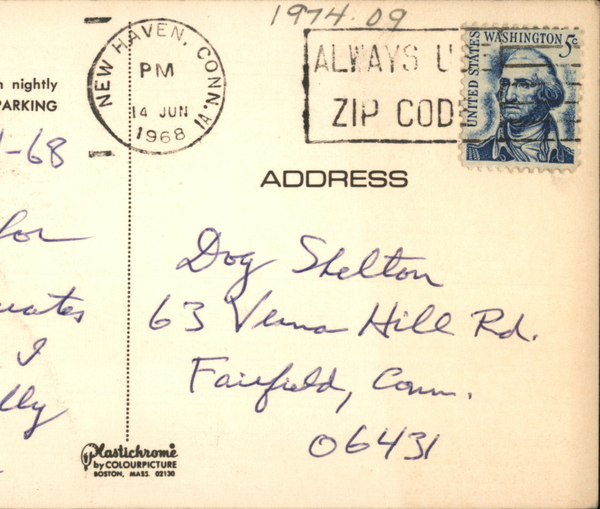 1974.09
NEW HAVEN, CONN. 1A
PM
14 JUN
1968
ALWAYS U
ZIP COD
UNITED STATES
WASHINGTON 5c
nightly
PARKING
-68
ADDRESS
for
Dog Shelton
63 Verna Hill Rd.
I
Fairfield, Conn.
lly
06431
Plastichrome
by COLOURPICTURE
BOSTON, MASS. 02130